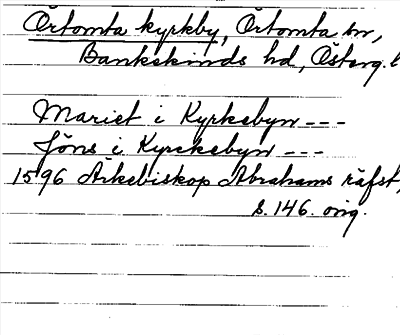 Örtomta kyrkby, Örtomta sn,
Bankekinds hd, Österg. l
Mariet i Kyrkebyn ---
Jöns i Kyrckebyn ---
1596 Ärkebiskop Abrahams räfst,
s. 146. orig.